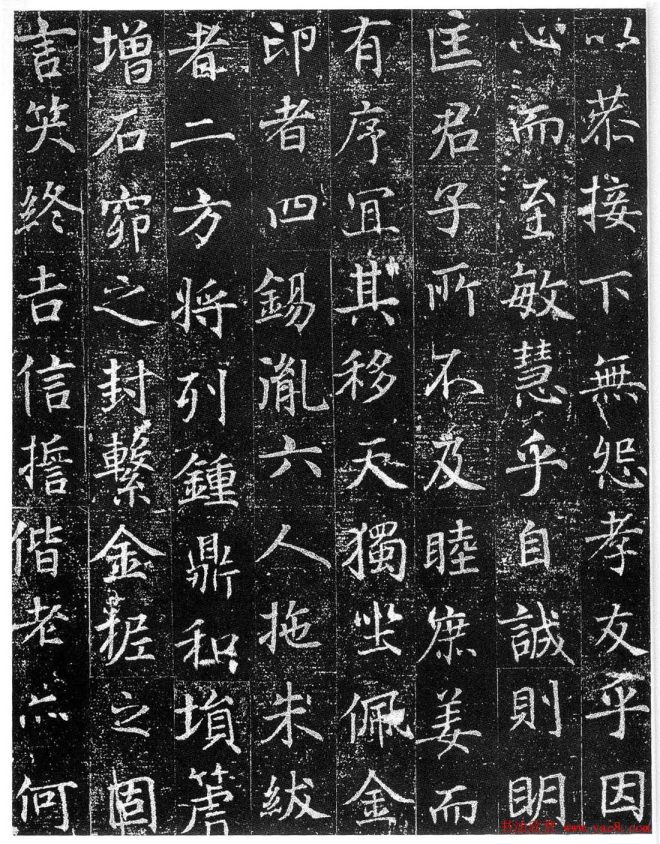 以恭接下無怨孝友乎因
心而至敏慧乎自誠則明
匡君子所不及睦庶姜而
有序宜其移天獨坐佩金
印者四錫胤六人拖朱紱
者二方將列鍾鼎和塤篪
增石窌之封繫金柅之固
言笑終吉信擔偕老亦何
书法欣赏 www.yac8.com